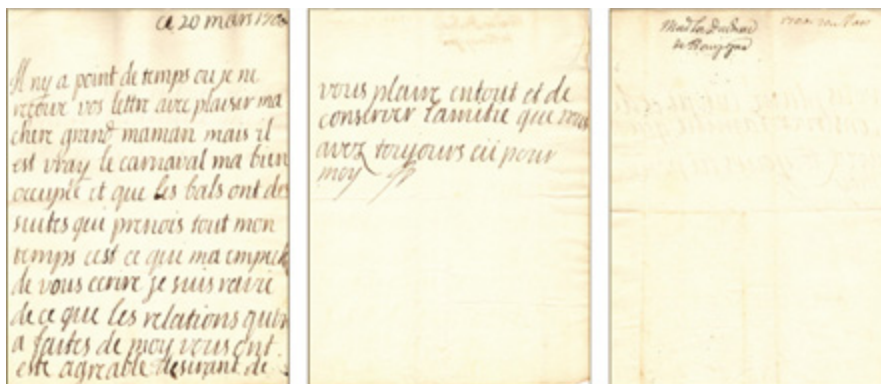 ce 20 mars 1700
Il ny a point de temps ou je ne
recoive vos lettre avec plaiser ma
chere grand maman mais il
est vray le carnaval ma bien
occupée et que les bals ont des
suites qui prenois tout mon
temps cest ce que ma empiché
de vous ecrire je suis ravie
de ce que les relations quon
a faites de moy vous ont
esté agreable desirant de
vous plaire entout et de
conserver lamitie que vous
avez toujours eü pour
moy
Mad la Duchesse
de Bourgogne
mars